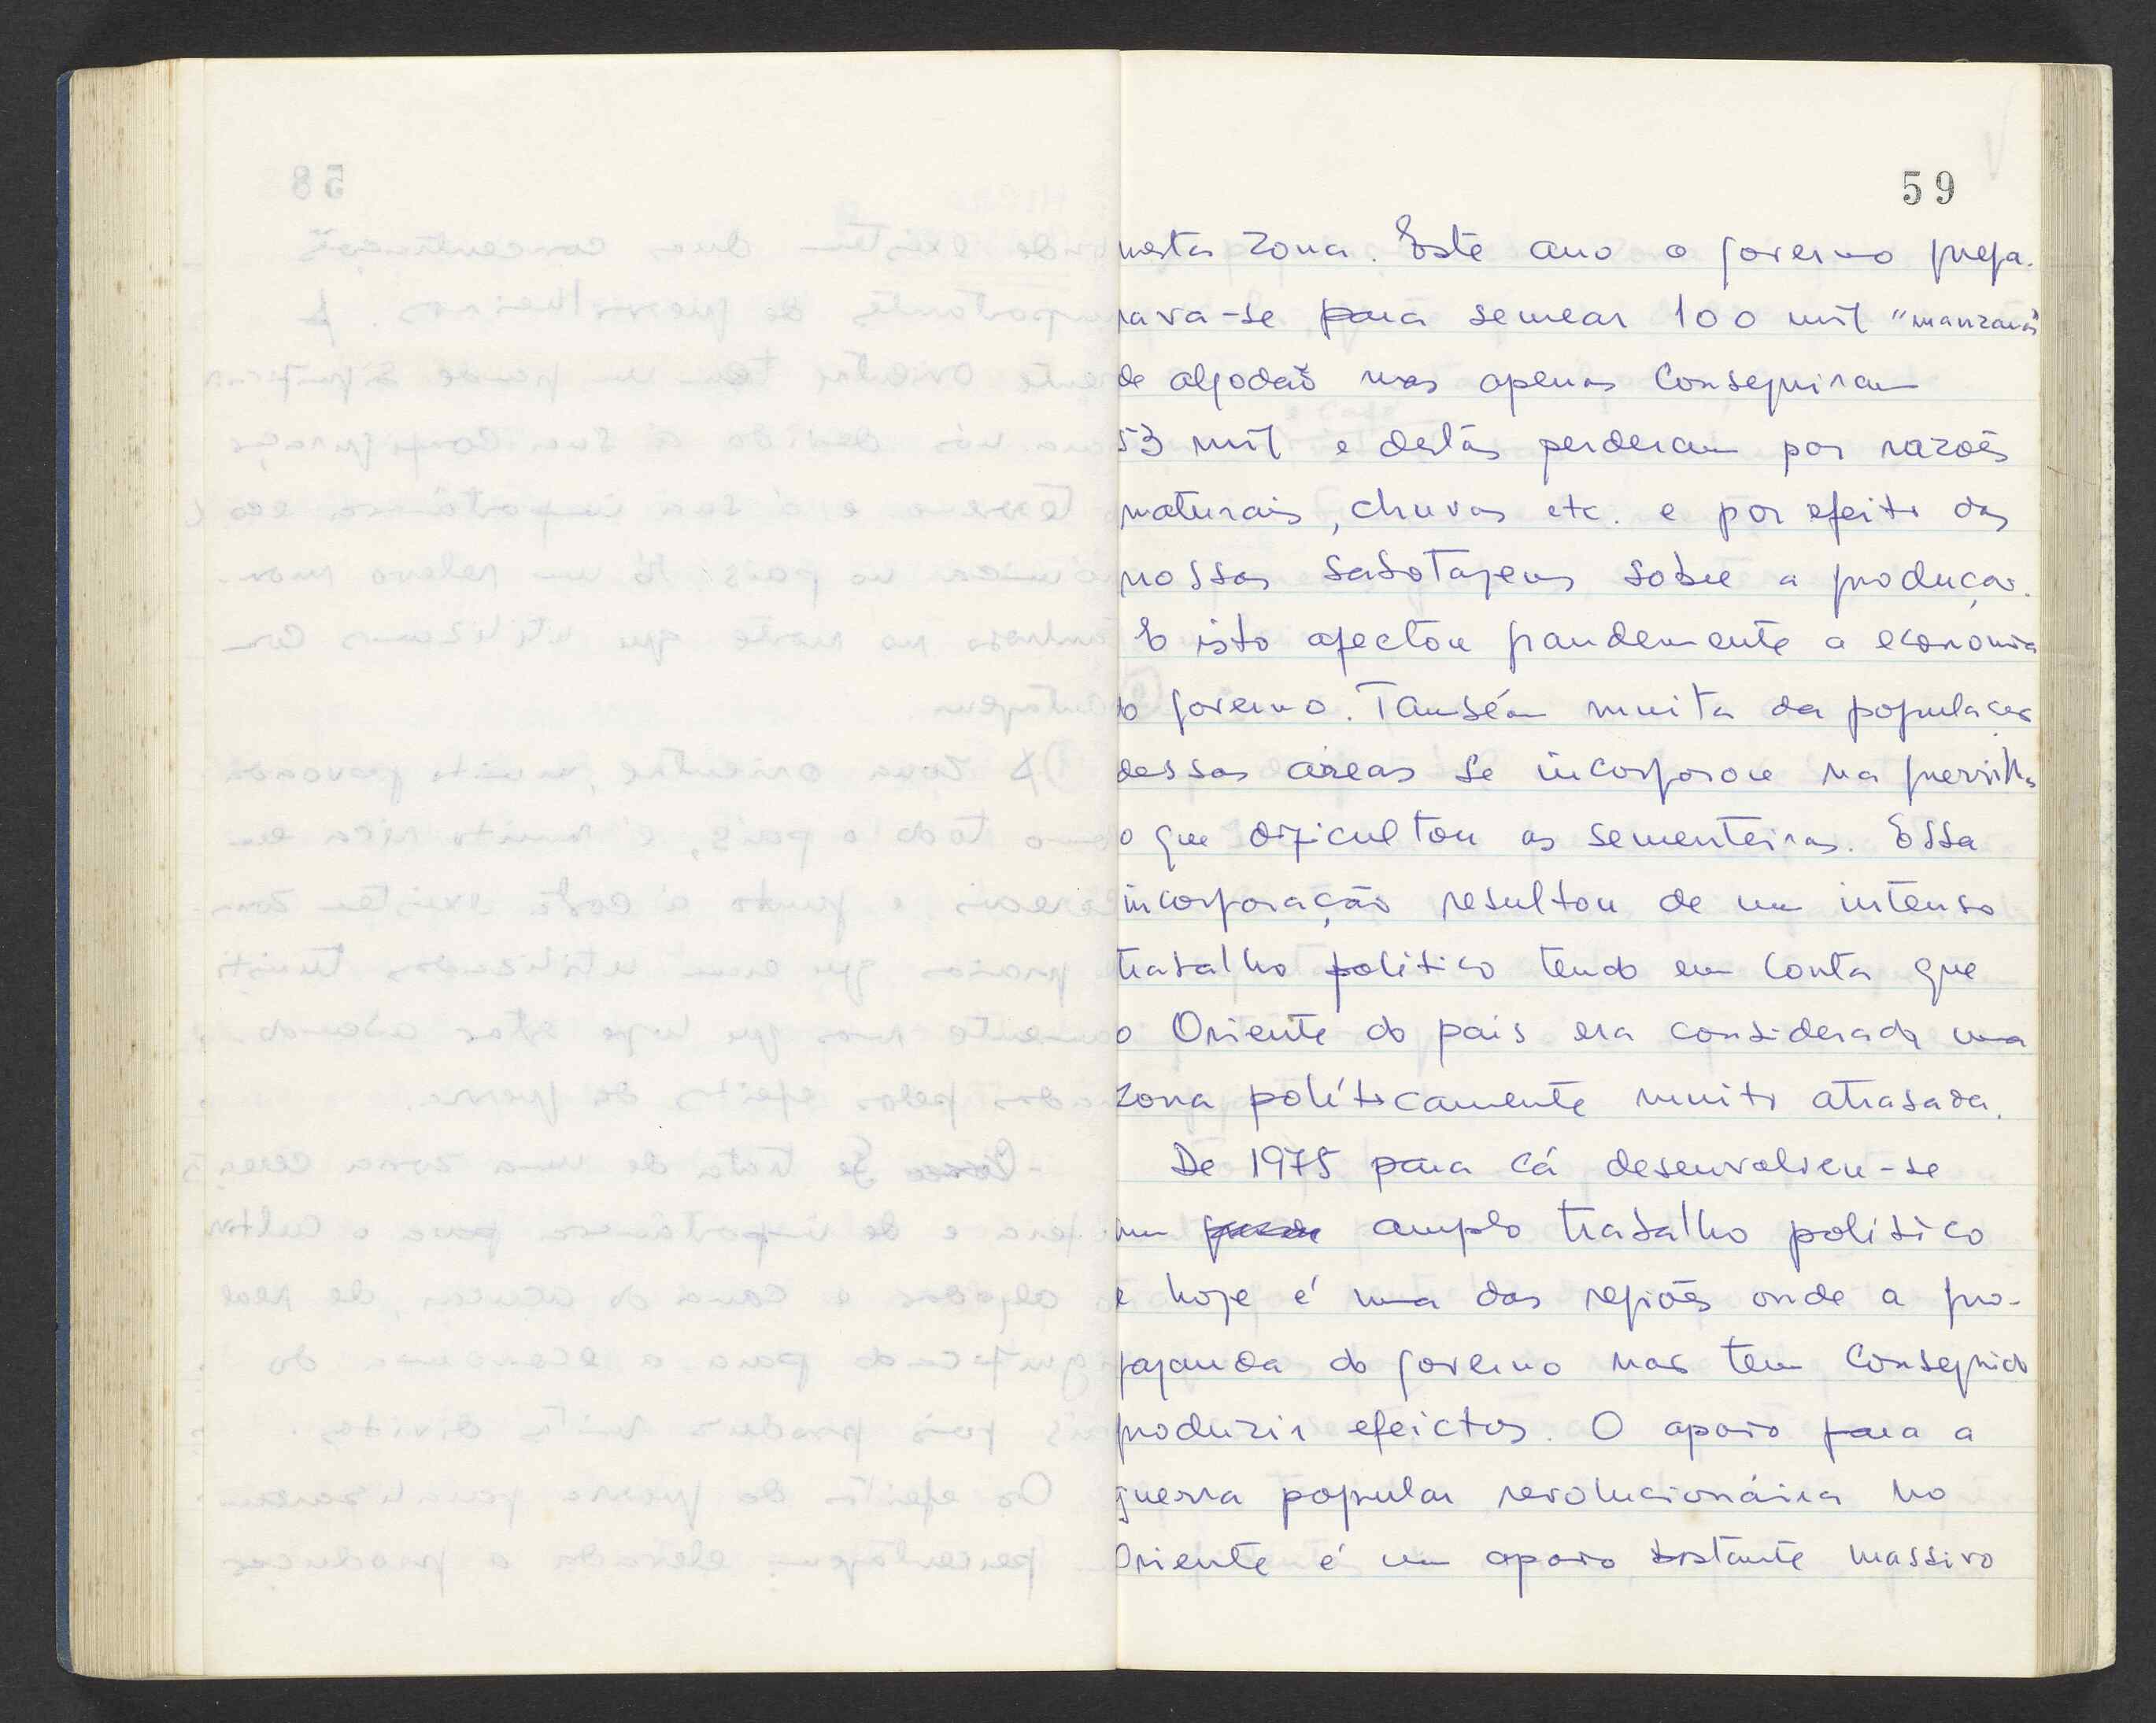 59
nesta zona. Este ano o governo prepa-
rava-se para semear 100 mil "manzanas"
de algodão mas apenas conseguiram
53 mil e destas perderam por razões
naturais, chuvas etc. e por efeito das
nossas sabotagens sobre a produção.
E isto afectou grandemente a economia
do governo. Também muita da população
dessas áreas se incorporou na guerrilha
o que dificultou as sementeiras. Essa
incorporação resultou de um intenso
trabalho politico tendo em conta que
o Oriente do pais era considerada uma
zona politicamente muito atrasada.
De 1975 para cá desenvolveu-se
um amplo trabalho politico
e hoje é uma das regiões onde a pro-
paganda do governo não tem conseguido
produzir efeictos. O apoio para a
guerra popular revolucionária no
Oriente é um apoio bastante massivo